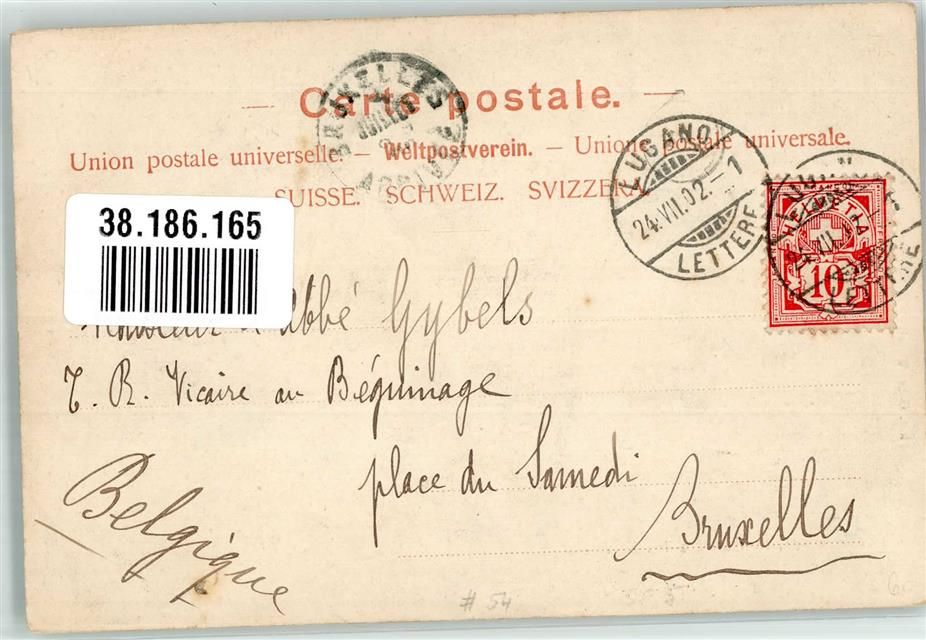 — Carte postale. —
Union postale universelle. — Weltpostverein. — Unione postale universale.
SUISSE. SCHWEIZ. SVIZZERA.
BRUXELLES
LUGANO
24.VII.02.–1
LETTERE
HELVETIA
10
LETTERE
38.186.165
l'Abbé Gybels
T. R. Vicaire au Béguinage
place du Samedi
Bruxelles
Belgique
# 54